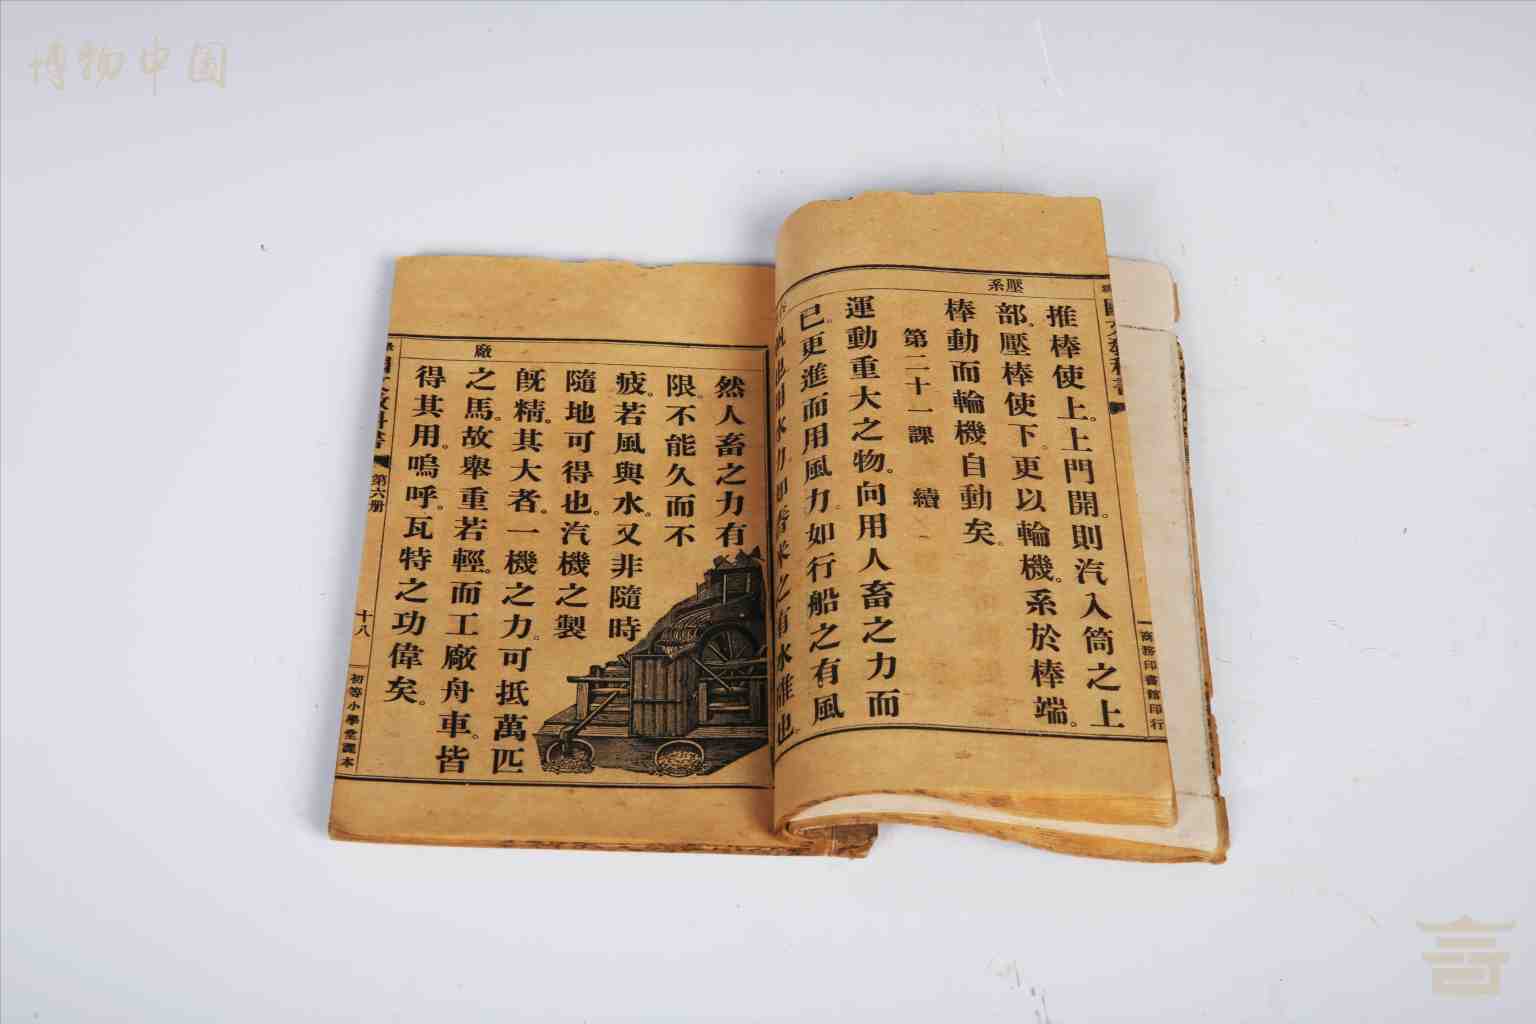 博物中国
壓系
推棒使上。上門開。則汽入筒之上
部。壓棒使下。更以輪機。系於棒端。
棒動而輪機自動矣。
第二十一課 續
運動重大之物。向用人畜之力而
已。更進而用風力。如行船之有風
也。用水力。如舂米之有水碓也。
商務印書館印行
廠
然人畜之力有
限。不能久而不
疲。若風與水。又非隨時
隨地可得也。汽機之製
旣精。其大者。一機之力。可抵萬匹
之馬。故舉重若輕。而工廠舟車。皆
得其用。嗚呼。瓦特之功偉矣。
國文教科書 第六册 十八 初等小學堂課本